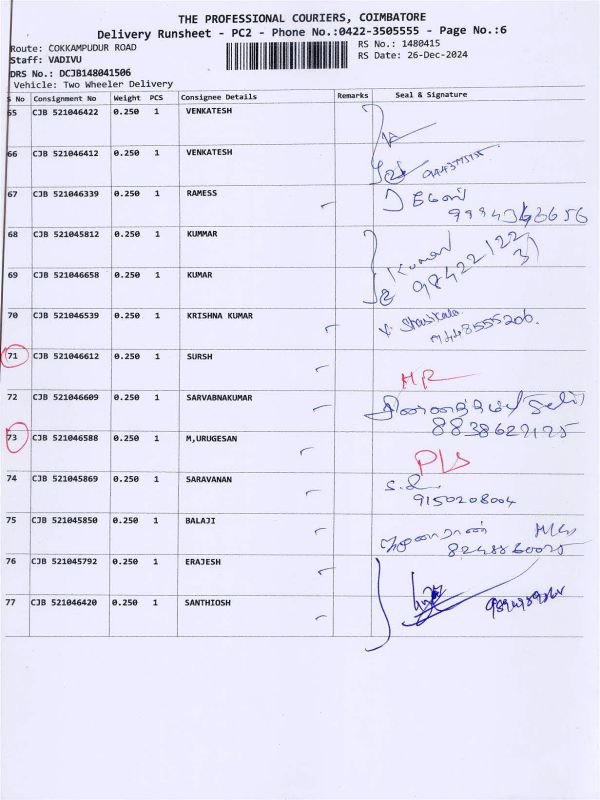 THE PROFESSIONAL COURIERS, COIMBATORE
Delivery Runsheet - PC2 - Phone No.:0422-3505555 - Page No.:6
Route: COKKAMPUDUR ROAD
RS No.: 1480415
Staff: VADIVU
RS Date: 26-Dec-2024
DRS No.: DCJB148041506
Vehicle: Two Wheeler Delivery
S No Consignment No Weight PCS Consignee Details Remarks Seal & Signature
65 CJB 521046422 0.250 1 VENKATESH
66 CJB 521046412 0.250 1 VENKATESH
67 CJB 521046339 0.250 1 RAMESS
68 CJB 521045812 0.250 1 KUMMAR Kumar
69 CJB 521046658 0.250 1 KUMAR
70 CJB 521046539 0.250 1 KRISHNA KUMAR V. Shasikala 7448555206.
71 CJB 521046612 0.250 1 SURSH
72 CJB 521046609 0.250 1 SARVABNAKUMAR
73 CJB 521046588 0.250 1 M,URUGESAN
74 CJB 521045869 0.250 1 SARAVANAN 9150208004
75 CJB 521045850 0.250 1 BALAJI
76 CJB 521045792 0.250 1 ERAJESH
77 CJB 521046420 0.250 1 SANTHIOSH